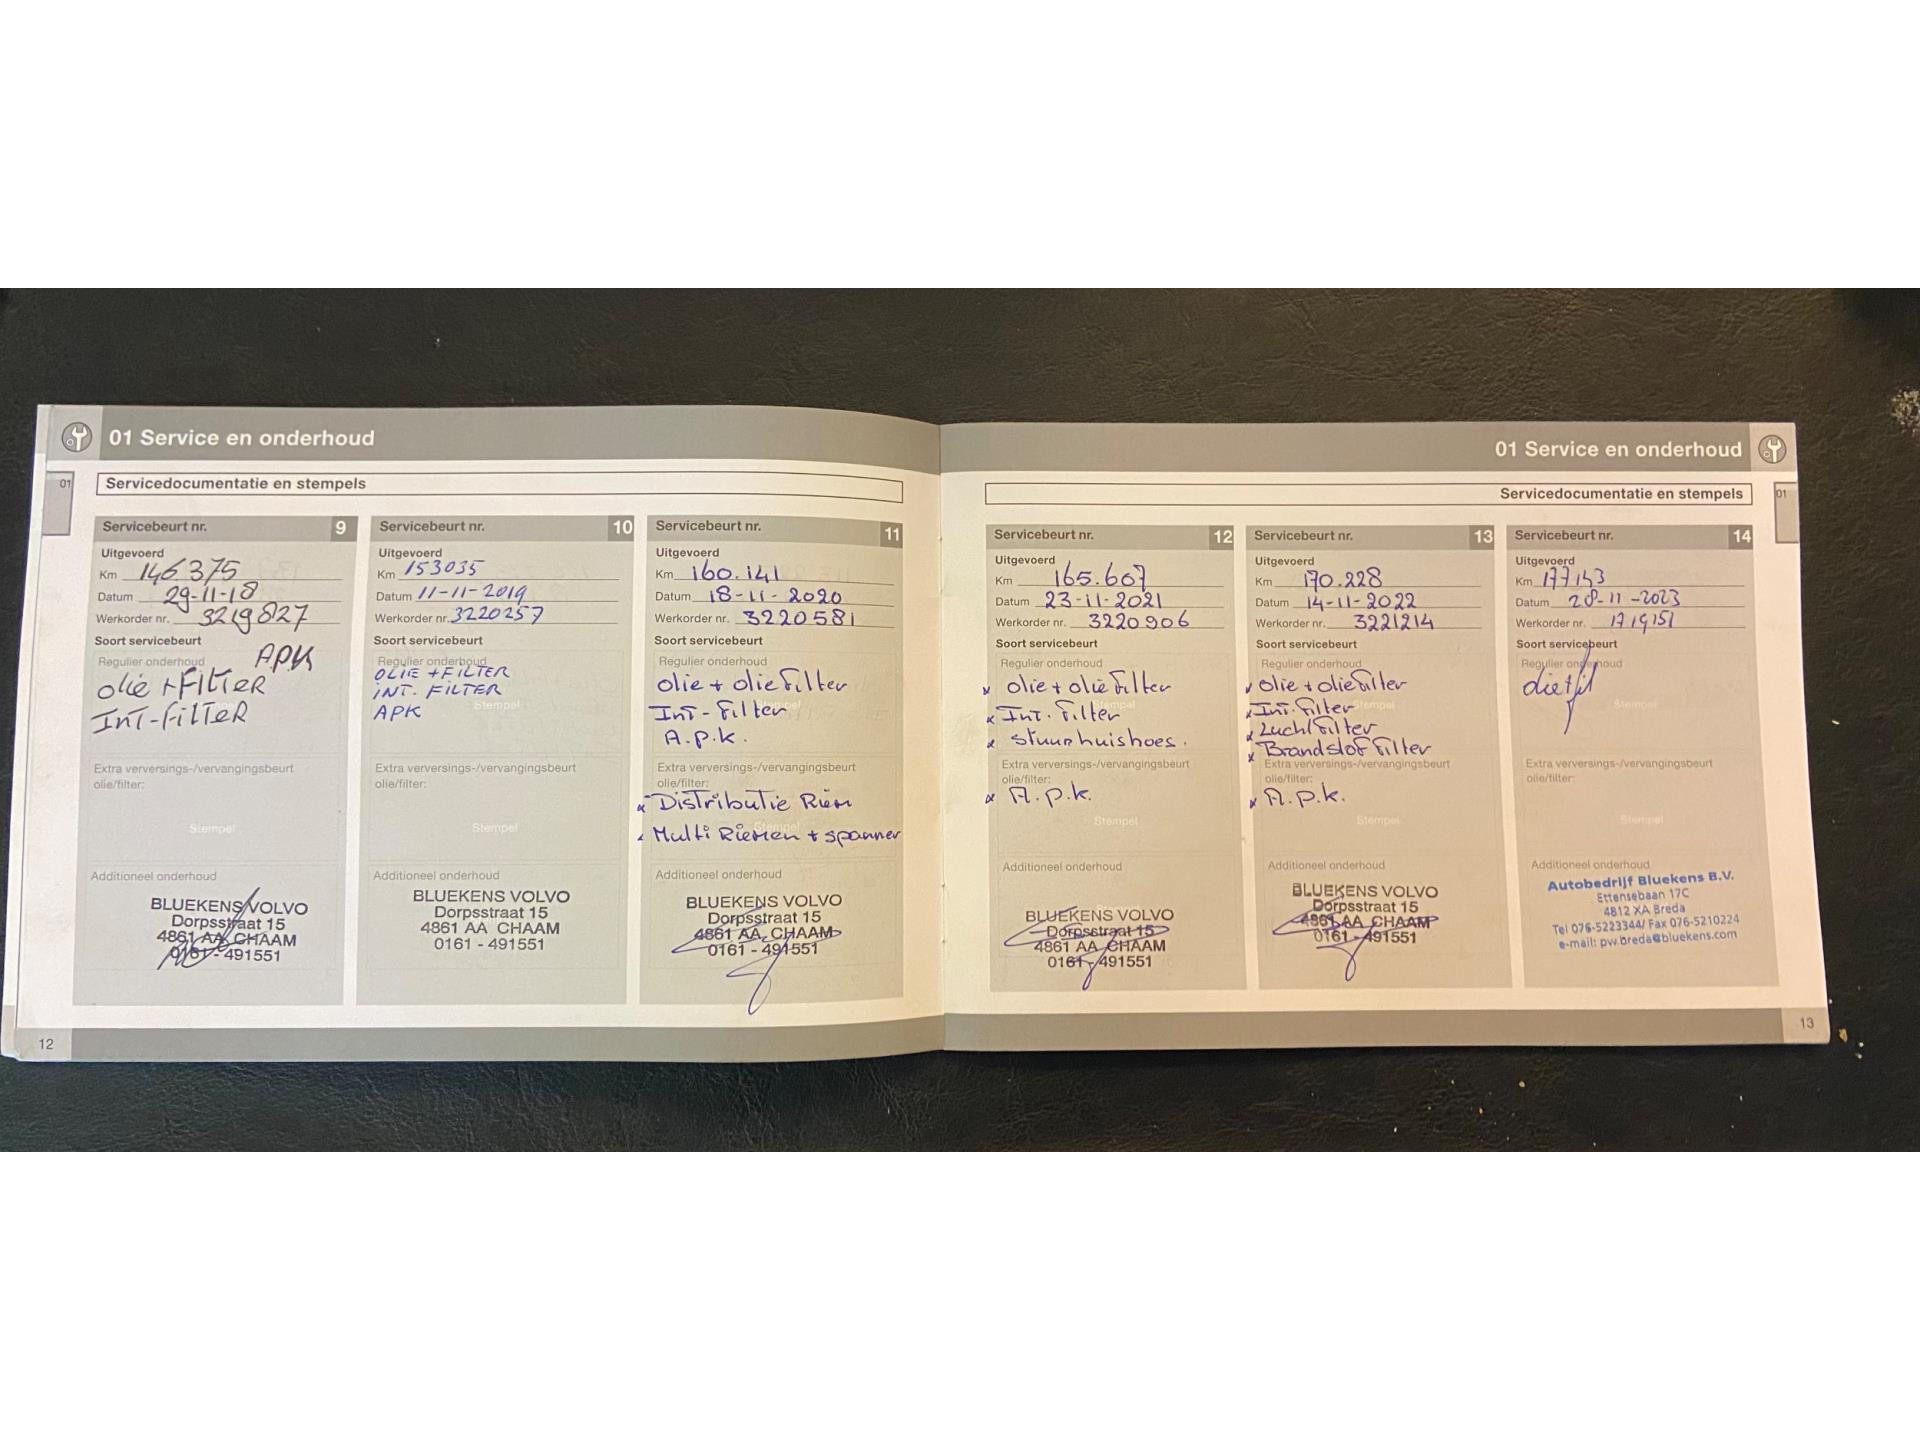 01 Service en onderhoud
01
Servicedocumentatie en stempels
Servicebeurt nr. 9
Uitgevoerd
Km 146375
Datum 29-11-18
Werkorder nr. 3219827
Soort servicebeurt
Regulier onderhoud
APK
olie + FilTER
InT-filTeR
Extra verversings-/vervangingsbeurt
olie/filter:
Stempel
Additioneel onderhoud
BLUEKENS VOLVO
Dorpsstraat 15
4861 AA CHAAM
0161 - 491551
Servicebeurt nr. 10
Uitgevoerd
Km 153035
Datum 11-11-2019
Werkorder nr. 3220257
Soort servicebeurt
Regulier onderhoud
OLIE + FILTER
INT. FILTER
Stempel
APK
Extra verversings-/vervangingsbeurt
olie/filter:
Stempel
Additioneel onderhoud
BLUEKENS VOLVO
Dorpsstraat 15
4861 AA CHAAM
0161 - 491551
Servicebeurt nr. 11
Uitgevoerd
Km 160.141
Datum 18-11-2020
Werkorder nr. 3220581
Soort servicebeurt
Regulier onderhoud
olie + olie filter
Int-filter
A.p.k.
Extra verversings-/vervangingsbeurt
olie/filter:
x Distributie Riem
x Multi Riemen + spanner
Additioneel onderhoud
BLUEKENS VOLVO
Dorpsstraat 15
4861 AA CHAAM
0161 - 491551
12
01 Service en onderhoud
Servicedocumentatie en stempels
01
Servicebeurt nr. 12
Uitgevoerd
Km 165.607
Datum 23-11-2021
Werkorder nr. 3220906
Soort servicebeurt
Regulier onderhoud
x olie + olie filter
x Int. filter
x stuurhuishoes.
Extra verversings-/vervangingsbeurt
olie/filter:
x A.p.k.
Stempel
Additioneel onderhoud
BLUEKENS VOLVO
Dorpsstraat 15
4861 AA CHAAM
0161 - 491551
Servicebeurt nr. 13
Uitgevoerd
Km 170.228
Datum 14-11-2022
Werkorder nr. 3221214
Soort servicebeurt
Regulier onderhoud
x olie + olie filter
x Int. filter
x Luchtfilter
x Brandstof filter
Extra verversings-/vervangingsbeurt
olie/filter:
x A.p.k.
Stempel
Additioneel onderhoud
BLUEKENS VOLVO
Dorpsstraat 15
4861 AA CHAAM
0161 - 491551
Servicebeurt nr. 14
Uitgevoerd
Km 177143
Datum 28-11-2023
Werkorder nr. 1719151
Soort servicebeurt
Regulier onderhoud
Stempel
Extra verversings-/vervangingsbeurt
olie/filter:
Stempel
Additioneel onderhoud
Autobedrijf Bluekens B.V.
Ettensebaan 17C
4812 XA Breda
Tel 076-5223344/ Fax 076-5210224
e-mail: pw.breda@bluekens.com
13